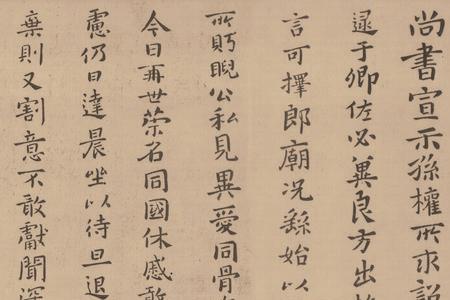 尚書宣示孫權所求詔
逮于卿佐必冀良方出
言可擇郎廟況繇始以
所盻睨公私見異愛同骨
今日再世榮名同國休慼敢
慮仍日達晨坐以待旦退
棄則又割意不敢獻聞深